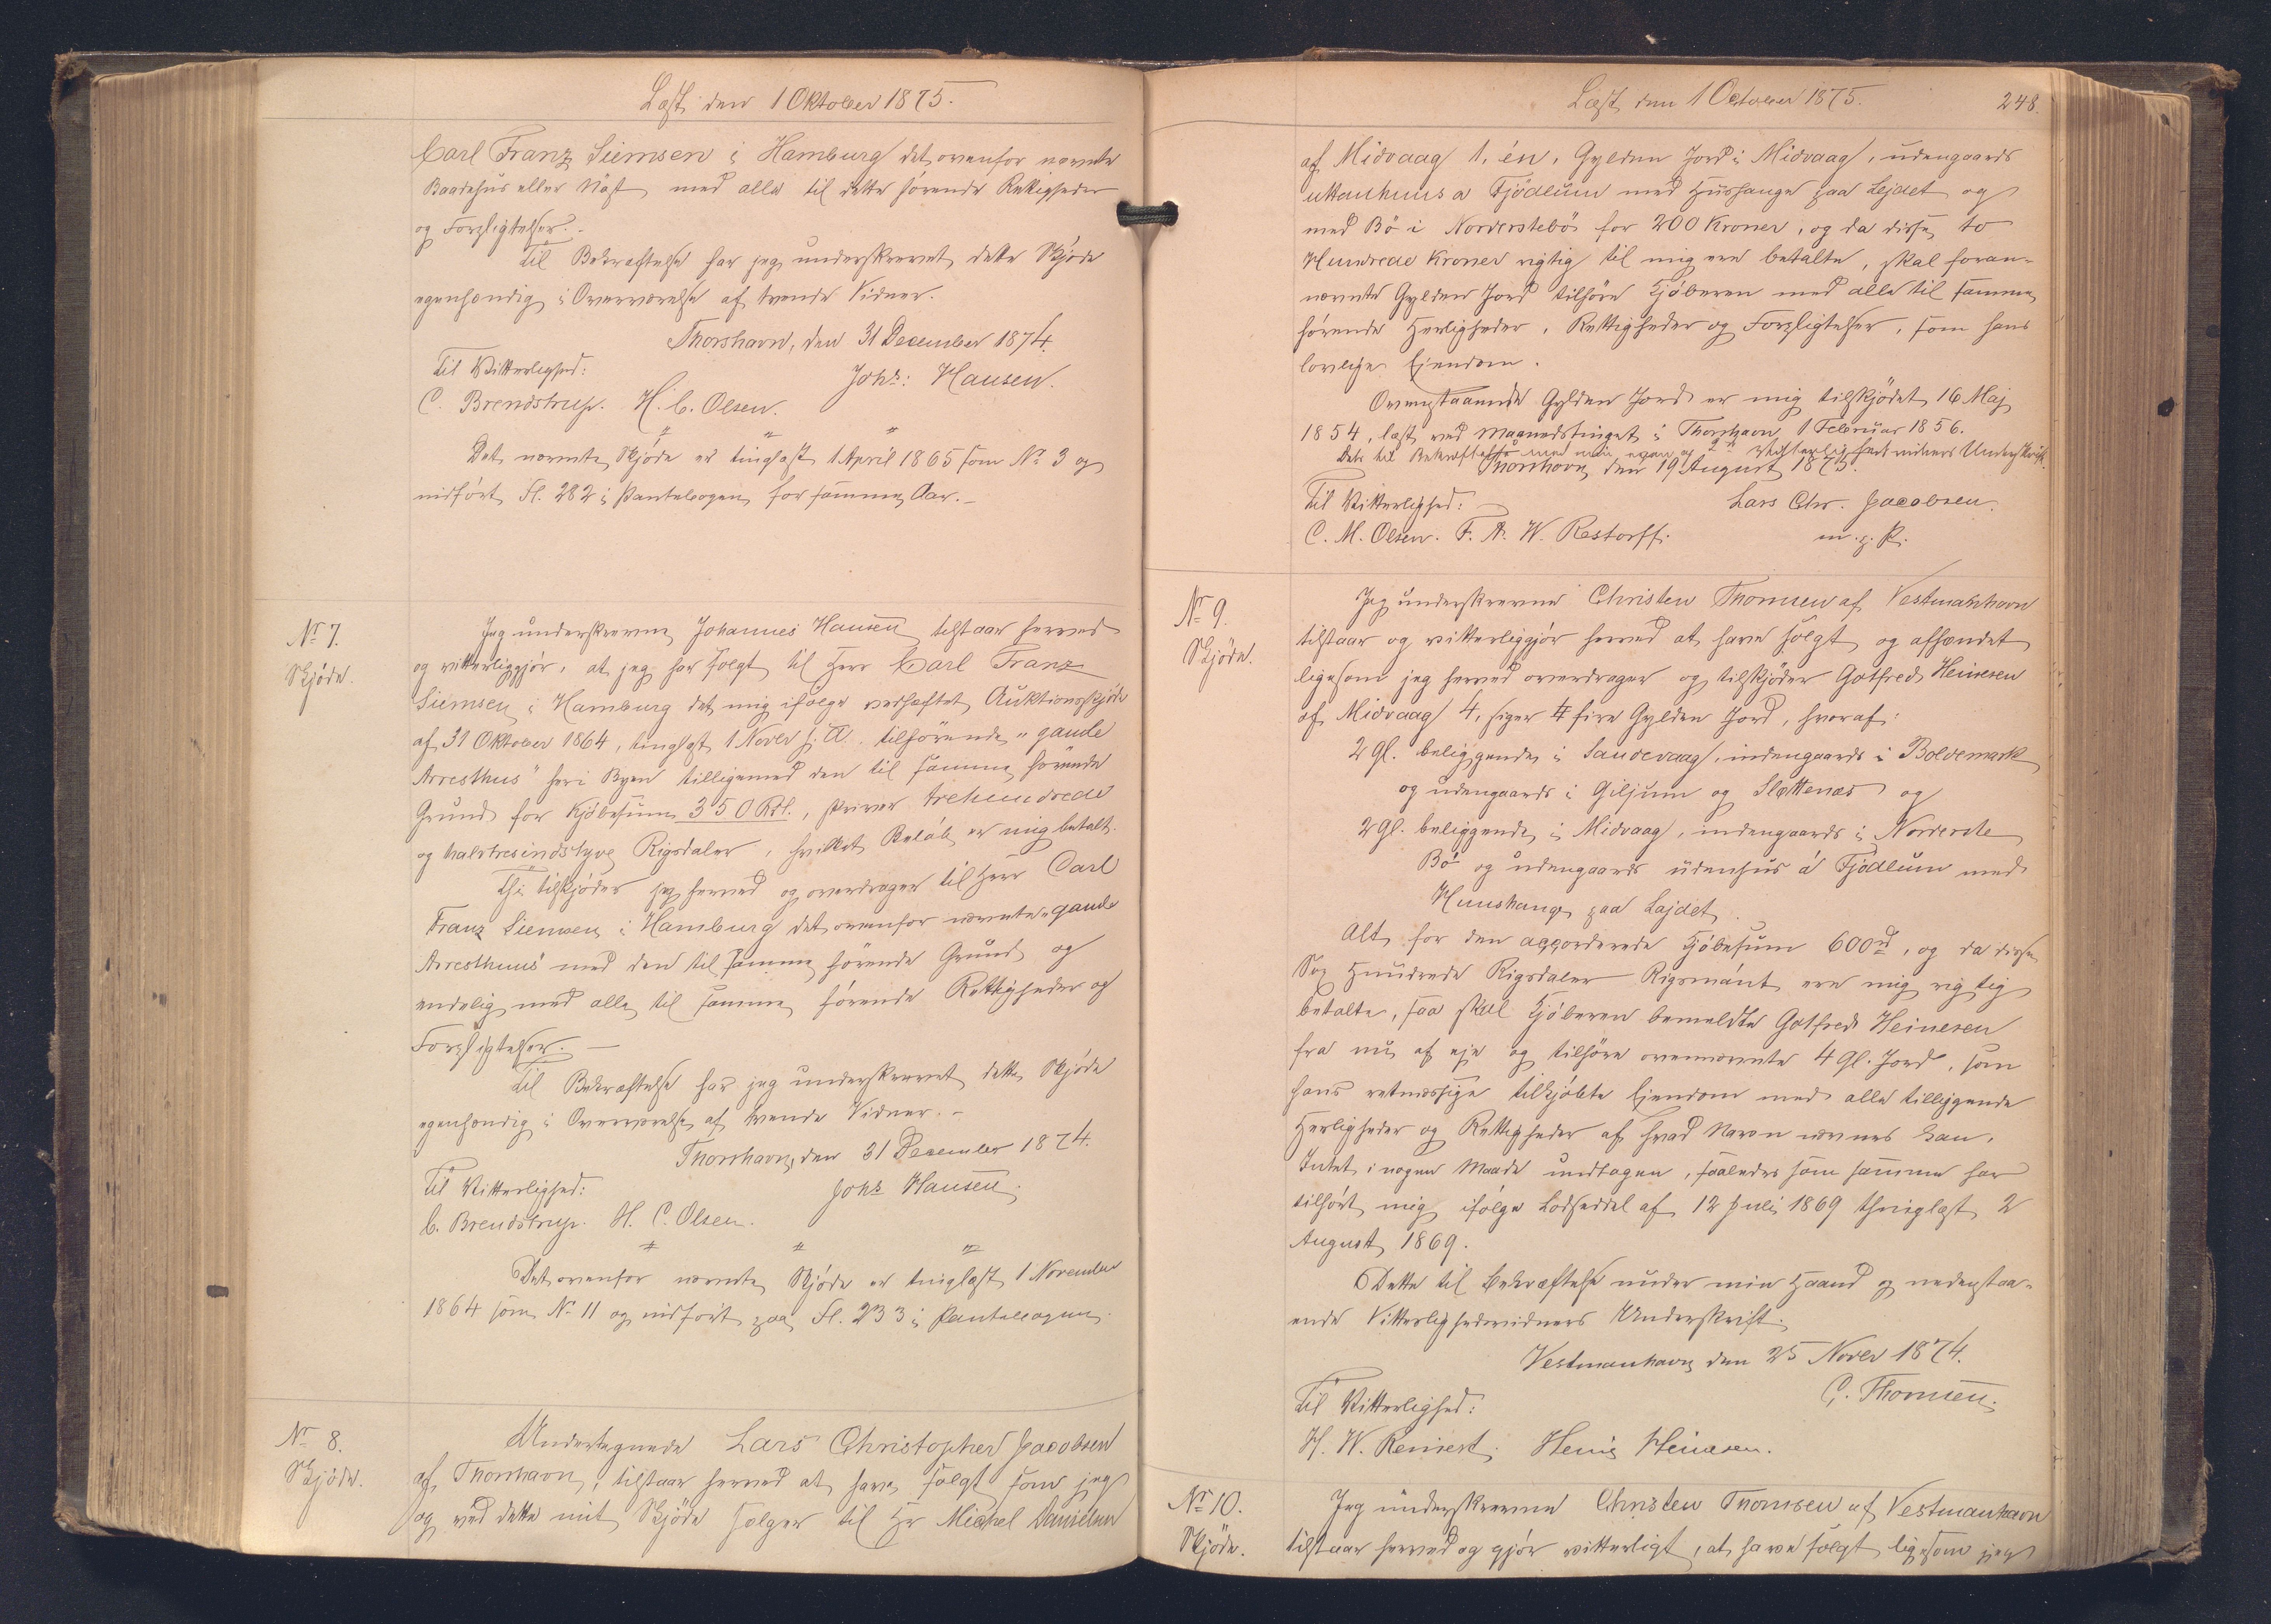 Læst den 1 Oktober 1875.
Carl Franz Siemsen i Hamburg det ovenfor nævnte
Baadehus eller Nøst med alle til dette hørende Rettigheder
og Forpligtelser. -
Til Bekræftelse har jeg underskrevet dette Skjøde
egenhændig i Overværelse af tvende Vidner.
Thorshavn, den 31 December 1874.
Til Vitterlighed:
Johs: Hansen.
C. Brendstrup. H. C. Olsen.
Det nævnte Skjøde er tinglæst 1 April 1865 som No 3 og
indført Fl. 282 i Pantebogen for samme Aar. -
No 7.
Skjøde.
Jeg underskrevne Johannes Hansen tilstaar herved
og vitterliggjør, at jeg har solgt til Herr Carl Franz
Siemsen i Hamburg det mig ifølge vedhæftet Auktionsskjøde
af 31 Oktober 1864, tinglæst 1 Novbr s. A. tilhørende "gamle
Arresthus" her i Byen tilligemed den til samme hørende
Grund for Kjøbesum 350 Rdl., skriver trehundrede
og halvtresindstyve Rigsdaler, hvilket Beløb er mig betalt.
Thi tilskjøder jeg herved og overdrager til Herr Carl
Franz Siemsen i Hamburg det ovenfor nævnte "gamle
Arresthuus" med den til samme hørende Grund og
endelig med alle til samme hørende Rettigheder og
Forpligtelser. -
Til Bekræftelse har jeg underskrevet dette Skjøde
egenhændig i Overværelse af tvende Vidner. -
Thorshavn, den 31 December 1874.
Til Vitterlighed:
Johs Hansen.
C. Brendstrup. H. C. Olsen.
Det ovenfor nævnte Skjøde er tinglæst 1 November
1864 som No 11 og indført paa Fl. 233 i Pantebogen.
No 8.
Skjøde.
Undertegnede Lars Christopher Jacobsen
af Thorshavn, tilstaar herved at have solgt som jeg
og ved dette mit Skjøde sælger til Hr Michel Danielsen
Læst den 1 October 1875.
248.
af Midvaag 1, én, Gylden Jord i Midvaag, udengaards
uttanhuus a Fjødlum med Huushauge paa Lejdet og
med Bø i Norderstebø for 200 Kroner, og da disse to
Hundrede Kroner rigtig til mig ere betalte, skal foran-
nævnte Gylden Jord tilhøre Kjøberen med alle til samme
hørende Herligheder, Rettigheder og Forpligtelser, som hans
lovlige Ejendom.
Ovenstaaende Gylden Jord er mig tilskjødet 16 Maj
1854, læst ved Maanedstinget i Thorshavn 1 Februar 1856.
Dette til Bekræftelse med min egen og 2de Vitterlighedsvidners Underskrift.
Thorshavn, den 19 August 1875.
Til Vitterlighed:
Lars Chr. Jacobsen.
C. M. Olsen. F. A. W. Restorff.
m. p. P.
No 9.
Skjøde.
Jeg underskrevne Christen Thomsen af Vestmanhavn
tilstaar og vitterliggjør herved at have solgt og afhændet
ligesom jeg herved overdrager og tilskjøder Gotfred Heinesen
af Midvaag 4, siger fire Gylden Jord, hvoraf:
2 Gl. beliggende i Sandevaag, indengaards i Boldemark
og udengaards i Giljum og Slettenæs og
2 Gl. beliggende i Midvaag, indengaards i Norderste
Bø og udengaards udenhus á Fjødlum med
Huushauge paa Lajdet.
Alt for den accorderede Kjøbesum 600 rd, og da disse
Sex Hundrede Rigsdaler Rigsmønt ere mig rigtig
betalte, saa skal Kjøberen bemeldte Gotfred Heinesen
fra nu af eje og tilhøre ovennævnte 4 Gl. Jord, som
hans retmæssige tilkjøbte Ejendom med alle tilliggende
Herligheder og Rettigheder af hvad Navn nævnes kan,
Intet i nogen Maade undtagen, saaledes som samme har
tilhørt mig ifølge Lodseddel af 12 Juli 1869 thinglæst 2
August 1869.
Dette til Bekræftelse under min Haand og nedenstaa-
ende Vitterlighedsvidners Underskrift.
Vestmanhavn den 25 Novbr 1874.
Til Vitterlighed:
C. Thomsen.
H. W. Reinert. Heinesen.
No 10.
Skjøde.
Jeg underskrevne Christen Thomsen af Vestmanhavn
tilstaar herved og gjør vitterligt, at have solgt ligesom jeg